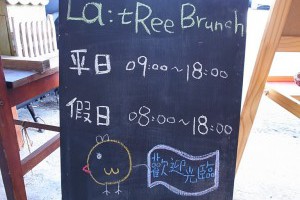 La:tRee Brunch
平日 09:00~18:00
假日 08:00~18:00
歡迎光臨